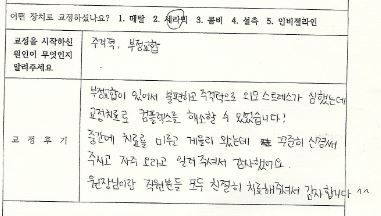 어떤 장치로 교정하셨나요? 1. 메탈 2. 세라믹 3. 콤비 4. 설측 5. 인비절라인
교정을 시작하신
원인이 무엇인지
말려주세요
주걱턱, 부정교합
부정교합이 있어서 불편하고 주걱턱으로 외모 스트레스가 심했는데
교정치료로 컴플렉스를 해소할 수 있었습니다!
교 정 후 기
중간에 치료를 미루고 게을리 왔는데 꾸준히 신경써
주시고 자주 오라고 일러 주셔서 감사했어요.
원장님이랑 직원분들 모두 친절히 치료해주셔서 감사합니다 ^^